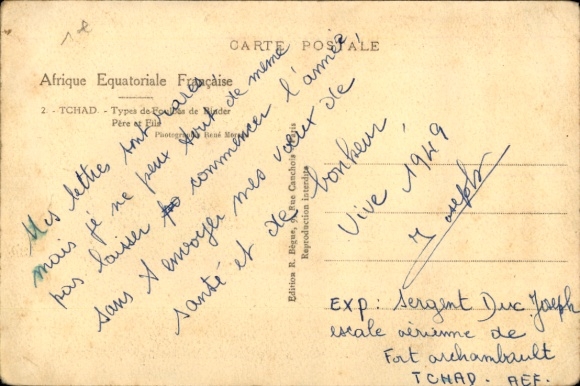 1€
CARTE POSTALE
Afrique Equatoriale Française
2. - TCHAD. - Types de Foulbés de Binder
Père et Fils
Photographe René
Mes lettres sont rares
mais je ne peux tout de même
pas laisser commencer l'année
sans t'envoyer mes vœux de
santé et de bonheur
Vive 1949
Joseph
Edition R. Bègue, Rue Canchois Paris
Reproduction interdite
EXP: Sergent Duc Joseph
escale aérienne de
Fort archambault
TCHAD. AEF.